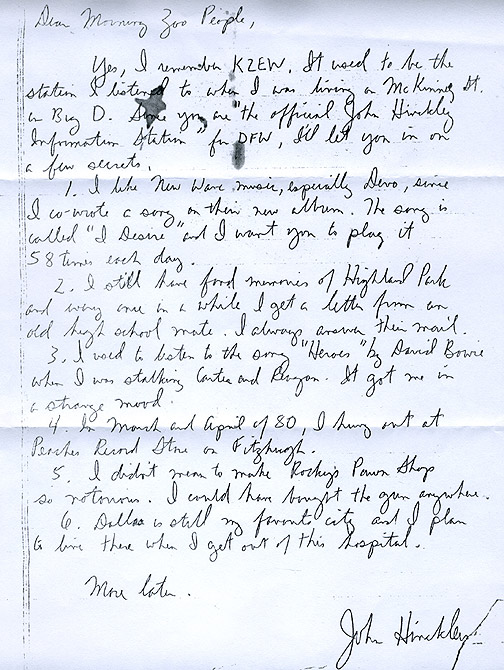 Dear Morning Zoo People,
Yes, I remember KZEW. It used to be the
station I listened to when I was living on McKinney St.
in Big D. Since you are the official John Hinckley
Information Station" for DFW, I'll let you in on
a few secrets.
1. I like New Wave music, especially Devo, since
I co-wrote a song on their new album. The song is
called "I Desire" and I want you to play it
58 times each day.
2. I still have fond memories of Highland Park
and every once in a while I get a letter from an
old high school mate. I always answer their mail.
3. I used to listen to the song "Heroes" by David Bowie
when I was stalking Carter and Reagan. It got me in
a strange mood.
4. In March and April of 80, I hung out at
Peaches Record Store on Fitzhugh.
5. I didn't mean to make Rocky's Pawn Shop
so notorious. I could have bought the gun anywhere.
6. Dallas is still my favorite city and I plan
to live there when I get out of this hospital.
More later.
John Hinckley